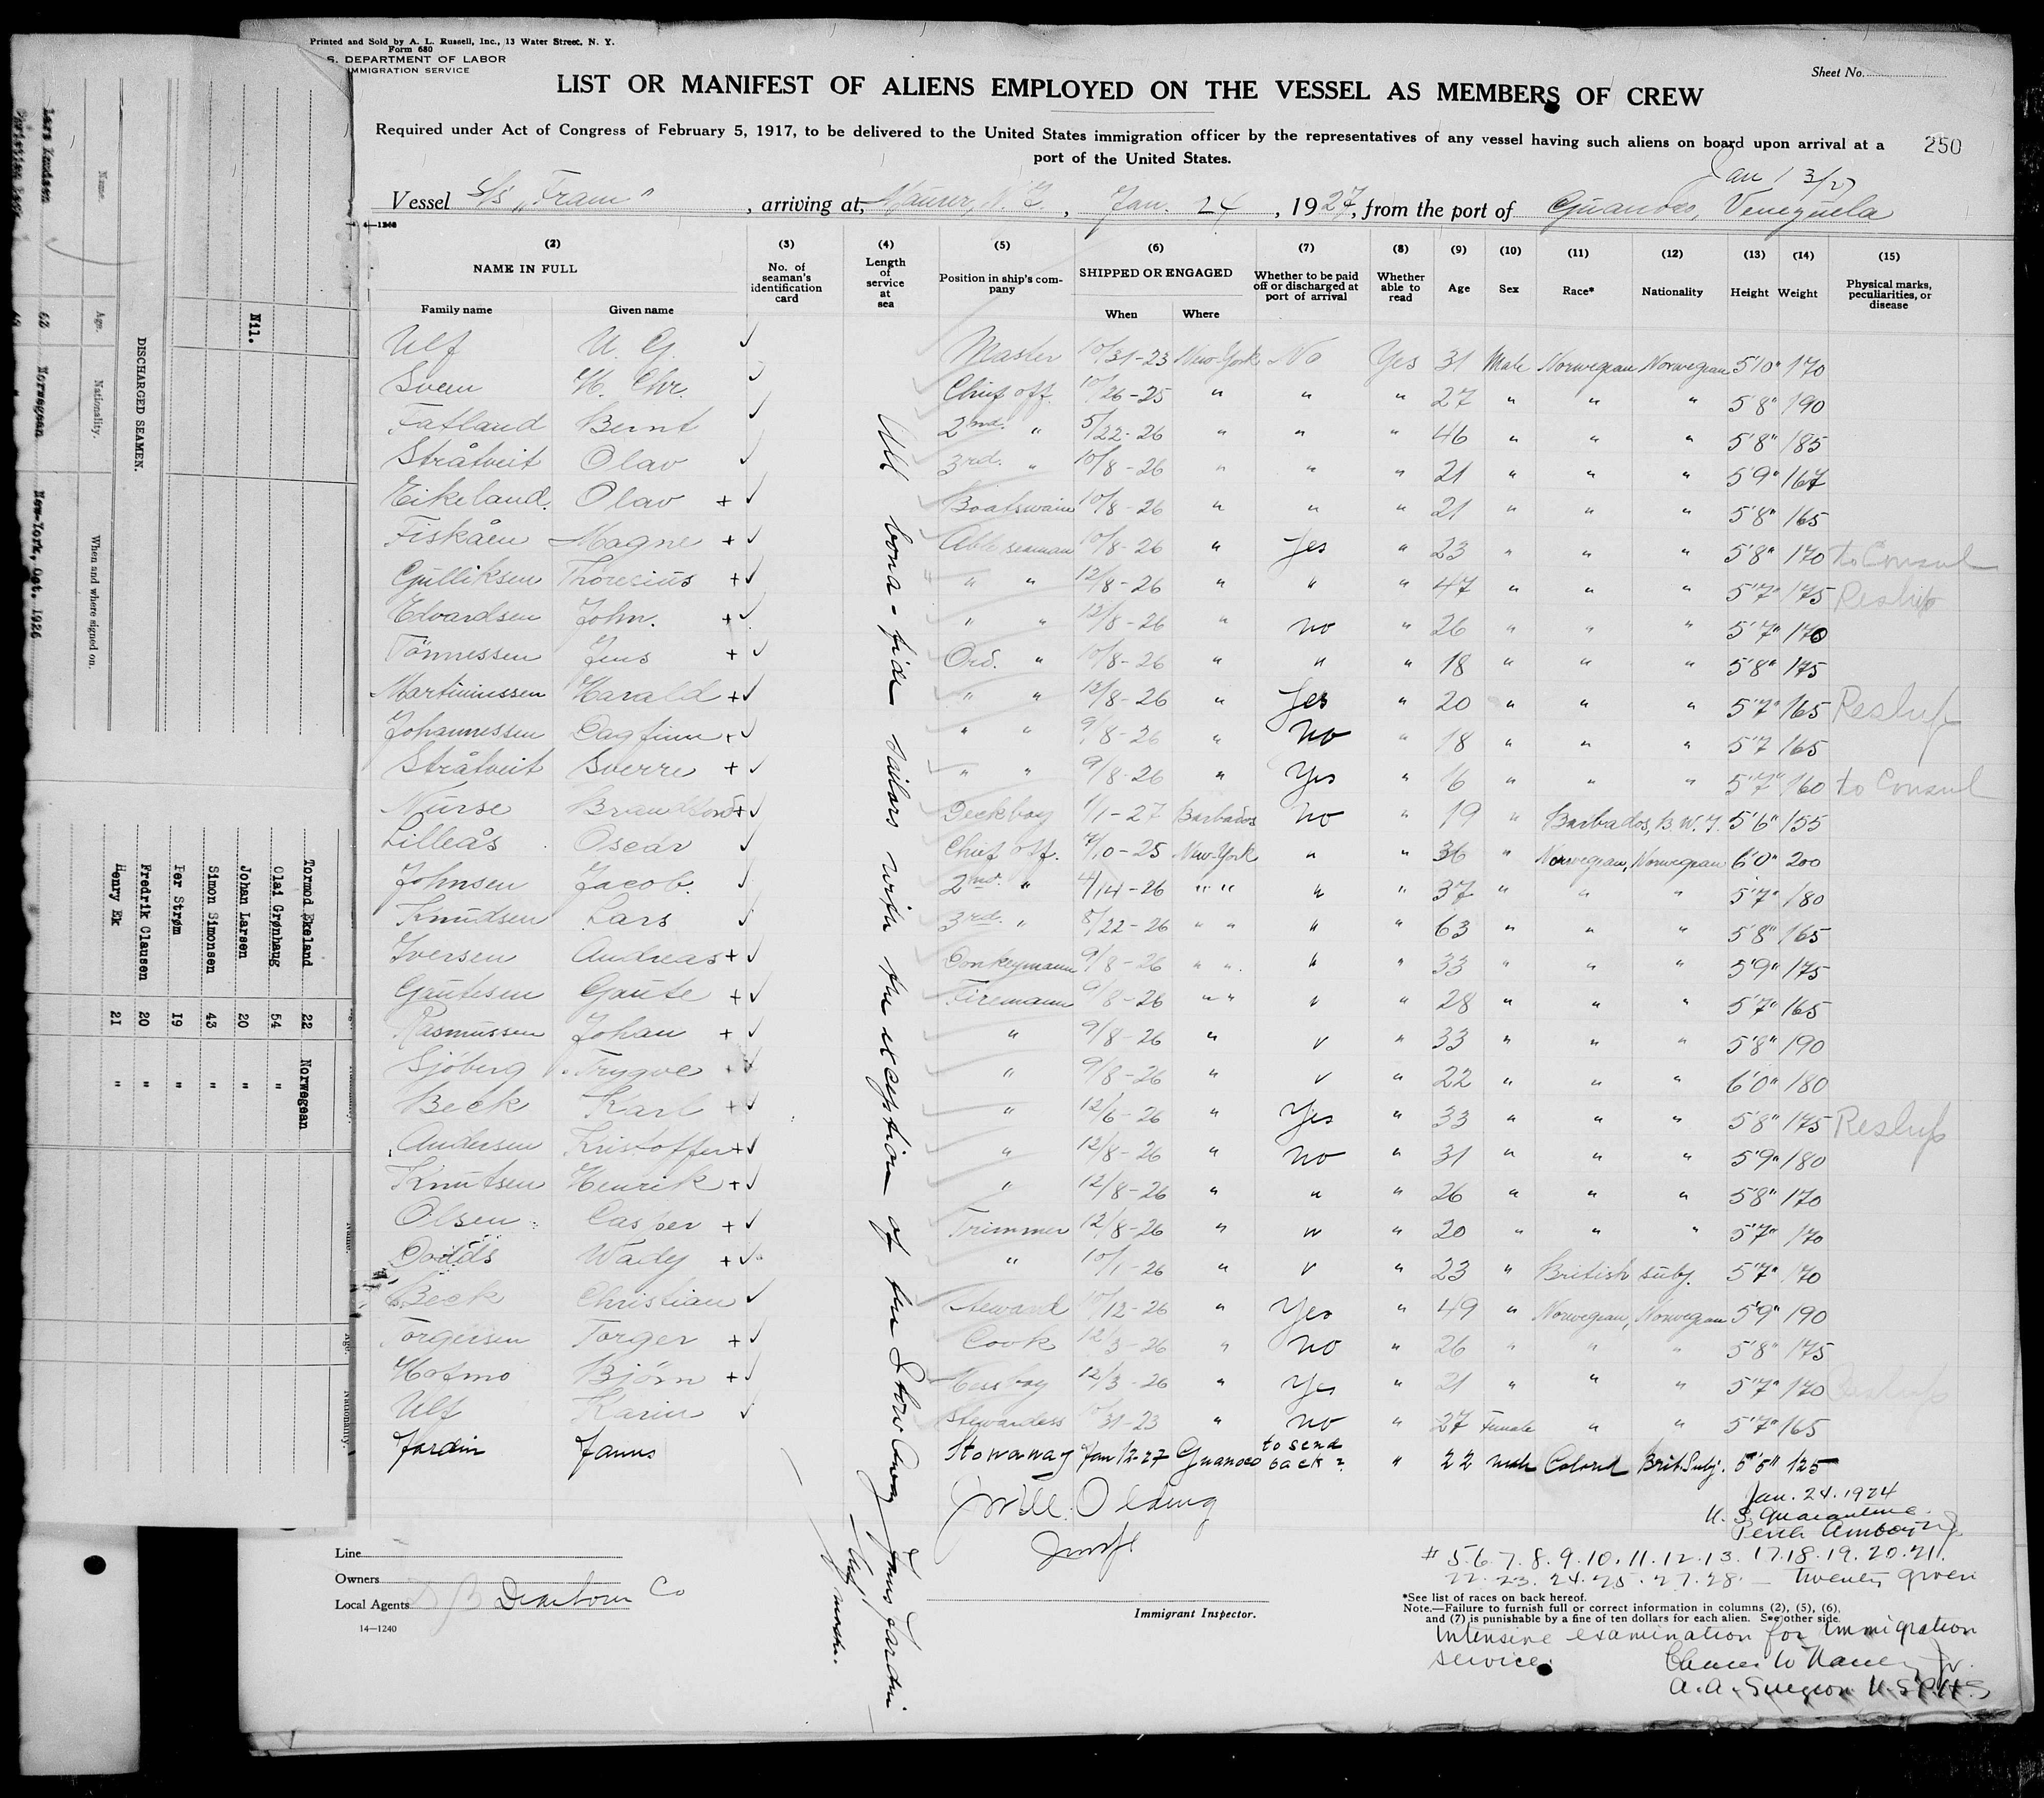 Printed and Sold by A. L. Russell, Inc., 13 Water Street, N. Y.
Form 680
S. DEPARTMENT OF LABOR
IMMIGRATION SERVICE
Sheet No.
LIST OR MANIFEST OF ALIENS EMPLOYED ON THE VESSEL AS MEMBERS OF CREW
Required under Act of Congress of February 5, 1917, to be delivered to the United States immigration officer by the representatives of any vessel having such aliens on board upon arrival at a
port of the United States.
250
Jan 13/27
Vessel S/S "Fram", arriving at Maurer, N.J., Jan. 24, 1927, from the port of Guanoco, Venezuela
(2) (3) (4) (5) (6) (7) (8) (9) (10) (11) (12) (13) (14) (15)
NAME IN FULL
Family name Given name
No. of seaman's identification card
Length of service at sea
Position in ship's company
SHIPPED OR ENGAGED
When Where
Whether to be paid off or discharged at port of arrival
Whether able to read
Age Sex Race* Nationality Height Weight
Physical marks, peculiarities, or disease
Ulf U. G. ✓ Master 10/31-23 New-York No Yes 31 Male Norwegian Norwegian 5'10" 170
Sveen H. Chr. ✓ Chief off. 10/26-25 " " " 27 " " " 5'8" 190
Fatland Bernt ✓ 2nd. " 5/22-26 " " " 46 " " " 5'8" 185
Stråtveit Olav ✓ 3rd. " 10/8-26 " " " 21 " " " 5'9" 167
Eikeland Olav + ✓ Boatswain 10/8-26 " " " 21 " " " 5'8" 165
Fiskåen Magne + ✓ Able seaman 10/8-26 " Yes " 23 " " " 5'8" 170 to Consul
Gulliksen Thoresius + ✓ " " 12/8-26 " " " 47 " " " 5'7" 175 Reship
Edvardsen John. + ✓ " " 12/8-26 " no " 26 " " " 5'7" 170
Tönnessen Jens + ✓ Ord. " 10/8-26 " " " 18 " " " 5'8" 175
Martiniussen Harald + ✓ " " 12/8-26 " Yes " 20 " " " 5'7" 165 Reship
Johannessen Dagfinn + ✓ " " 9/8-26 " No " 18 " " " 5'7 165
Stråtveit Sverre + ✓ " " 9/8-26 " Yes " 6 " " " 5'7" 160 to Consul
Nurse + ✓ Deckboy 1/1-27 Barbados No " 19 " Barbados, B.W.I. 5'6" 155
Lilleås Oscar ✓ Chief off. 7/10-25 New-York " " 36 " Norwegian, Norwegian 6'0" 200
Johnsen Jacob. ✓ 2nd. " 4/14-26 " " " " 37 " " " 5'7" 180
Knudsen Lars ✓ 3rd. " 8/22-26 " " " " 63 " " " 5'8" 165
Iversen Andreas + ✓ Donkeymann 9/8-26 " " " " 33 " " " 5'9" 175
Gautesen Gaute + ✓ Firemann 9/8-26 " " " " 28 " " " 5'7" 165
Rasmussen Johan + ✓ " 9/8-26 " " " 33 " " " 5'8" 190
Sjöberg Trygve + ✓ " 9/8-26 " " " 22 " " " 6'0" 180
Beck Karl + ✓ " 12/6-26 " Yes " 33 " " " 5'8" 175 Reship
Andersen Kristoffer + ✓ " 12/8-26 " No " 31 " " " 5'9" 180
Knutsen Henrik + ✓ " 12/8-26 " " " 26 " " " 5'8" 170
Olsen Casper + ✓ Trimmer 12/8-26 " " " 20 " " " 5'7" 170
Dodds Wady + ✓ " 10/1-26 " " " 23 " British subj. 5'7" 170
Beck Christian ✓ Steward 10/12-26 " Yes " 49 " Norwegian, Norwegian 5'9" 190
Torgersen Torger + ✓ Cook 12/3-26 " No " 26 " " " 5'8" 175
Björn + ✓ Messboy 12/3-26 " Yes " 21 " " " 5'7" 170 Reship
Ulf Karin ✓ Stewardess 10/31-23 " no " 27 Female " " 5'7" 165
Jardin Janus Stowaway Jan 12-27 Guanoco to send back? " 22 male Colored Brit. Subj. 5'5" 125
All bona-fide sailors with the exception of the Stow Away Janus Jardin
Ulf, master.
Jan. 24. 1924
U. S. Quarantine
Perth Amboy NJ
# 5.6.7.8.9.10.11.12.13.17.18.19.20.21.
22.23.24.25.27.28. — twenty given
Intensive examination for Immigration
service.
A. A. Surgeon U.S.P.H.S
Line
Owners
Local Agents Dearborn Co
14—1240
Immigrant Inspector.
*See list of races on back hereof.
Note.—Failure to furnish full or correct information in columns (2), (5), (6),
and (7) is punishable by a fine of ten dollars for each alien. See other side.
Nil.
DISCHARGED SEAMEN.
Name. Age. Nationality. When and where signed on.
Lars Knudsen 63 Norwegean New-York, Oct. 1926
Christian Beck 49 " "
Tormod Ekeland 22 Norwegean
Olai Grønhaug 54 "
Johan Larsen 20 "
Simon Simonsen 43 "
Per Strøm 19 "
Fredrik Clausen 20 "
Henry Ek 21 "